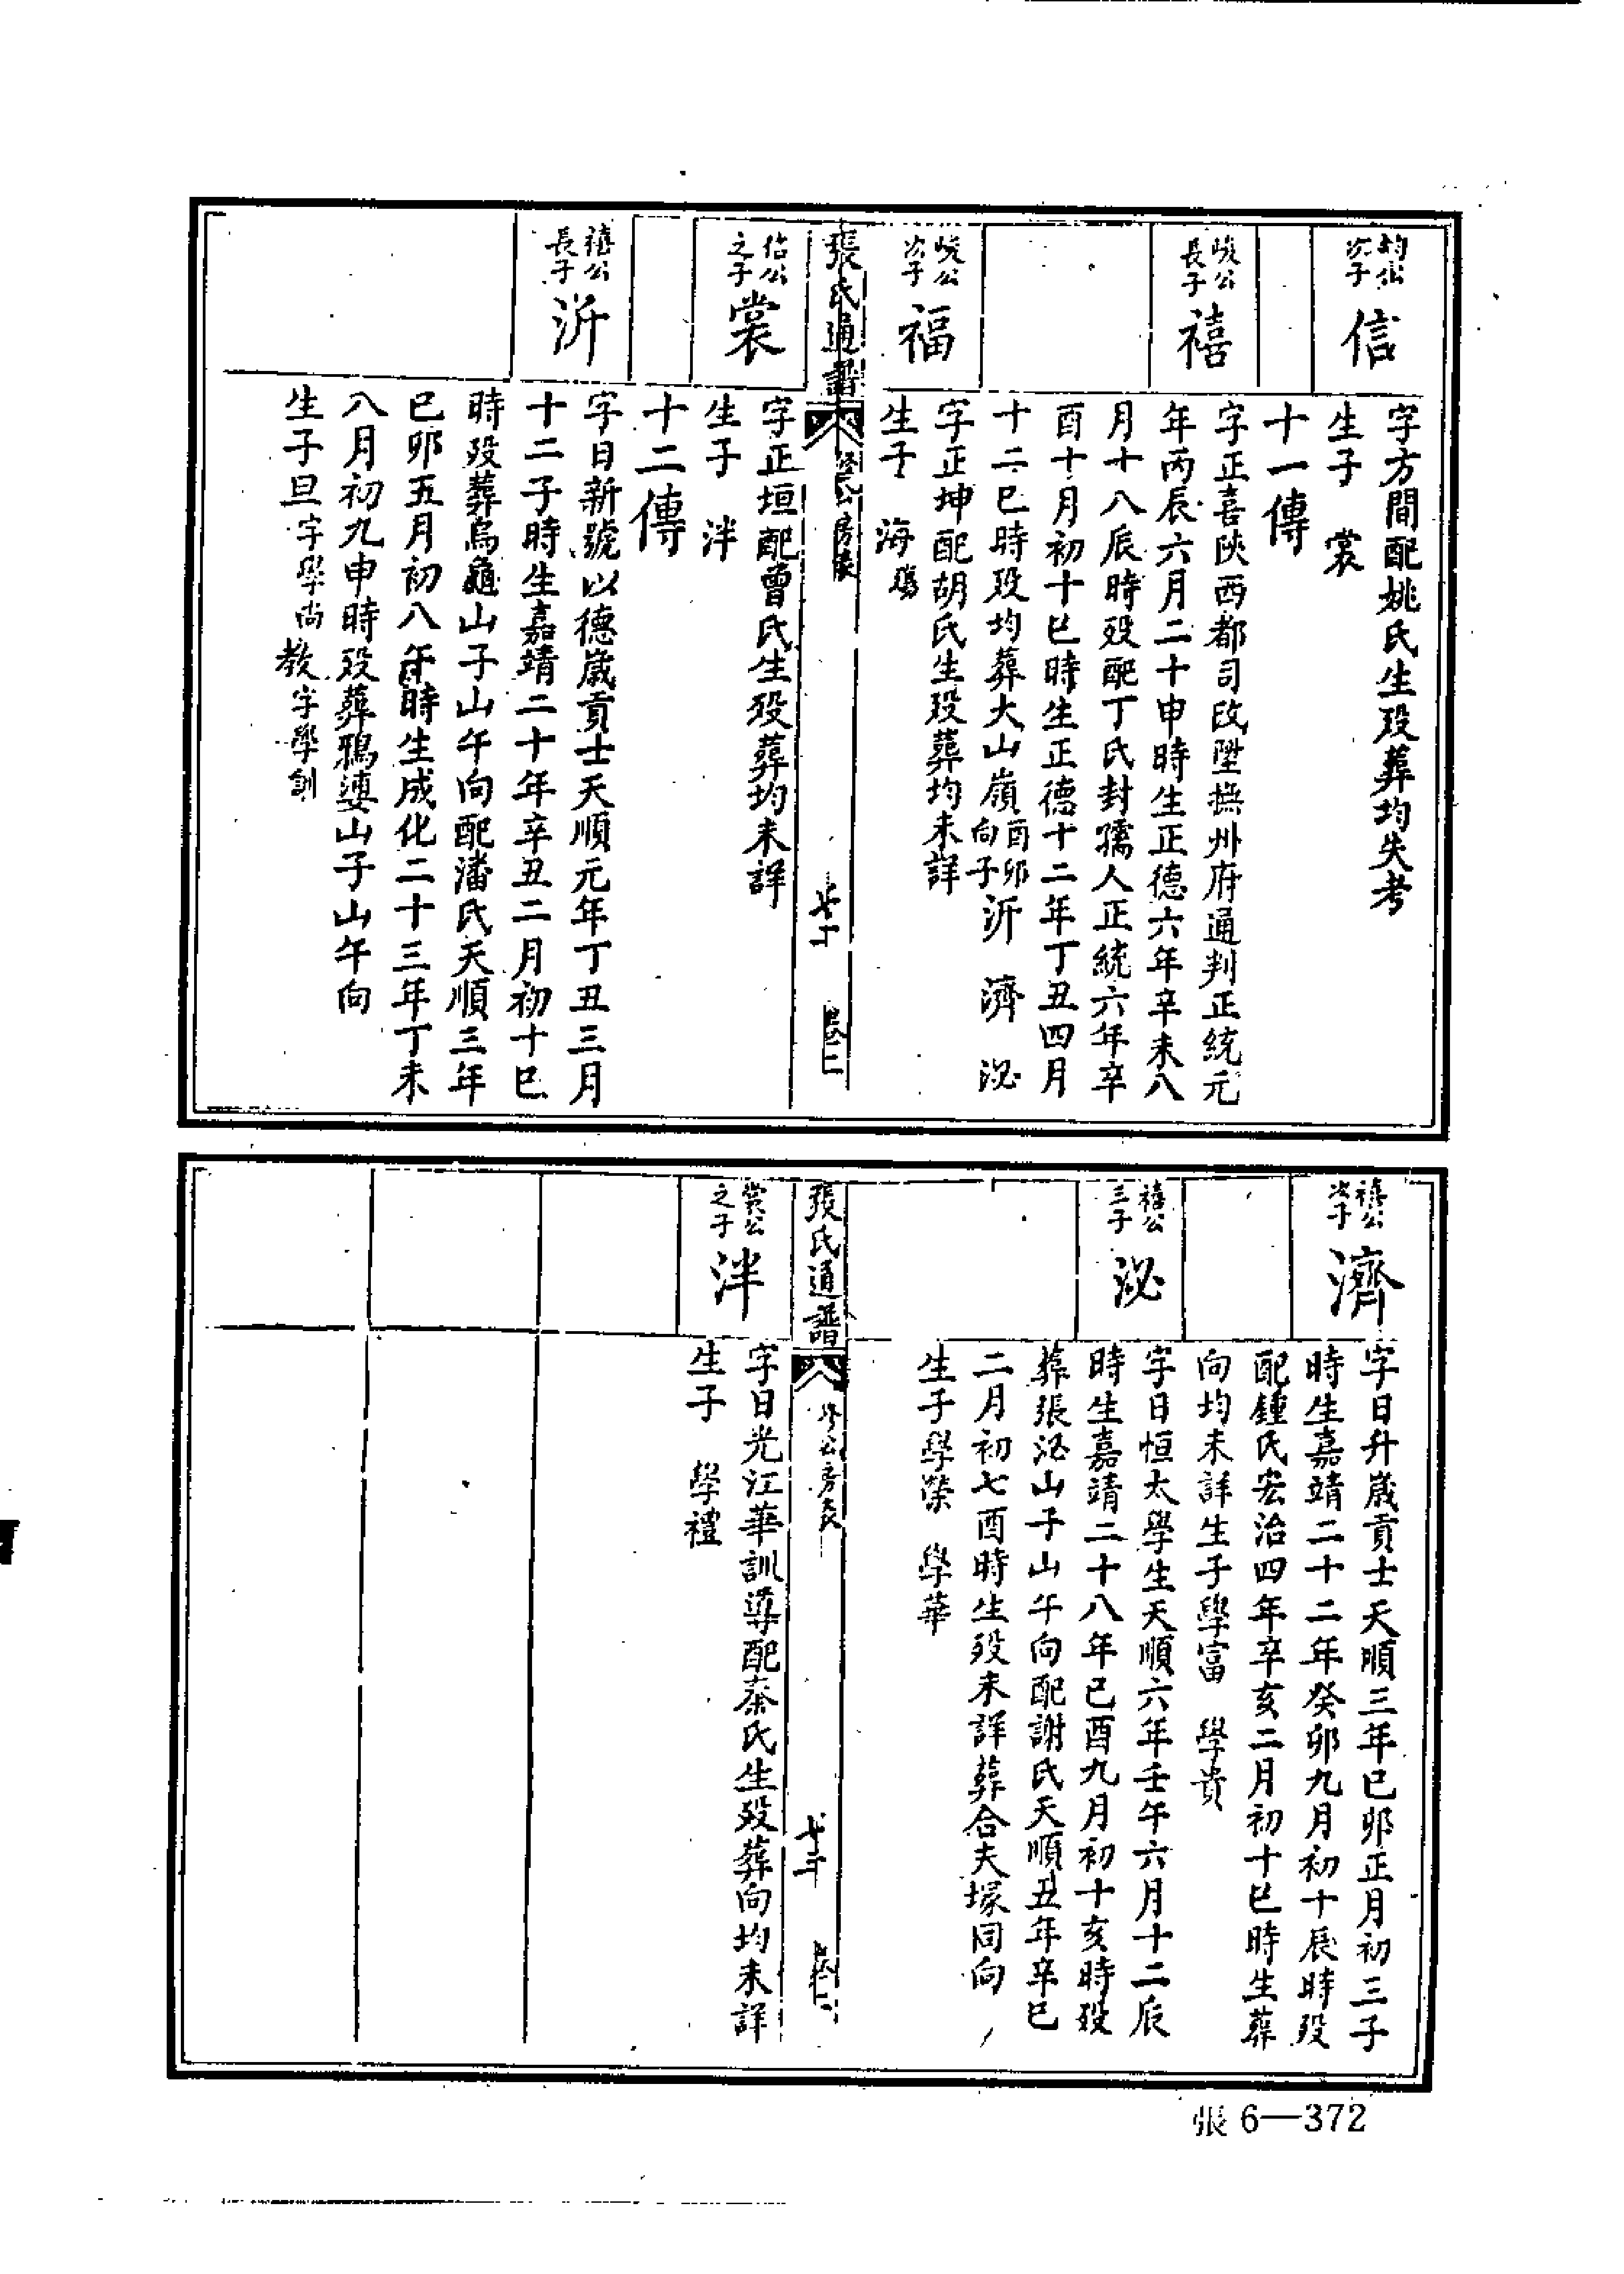 均公次子
信
字方間配姚氏生殁葬均失考
生子 裳
十一傳
峻公長子
禧
字正喜陝西都司改陞撫州府通判正統元
年丙辰六月二十申時生正德六年辛未八
月十八辰時殁配丁氏封孺人正統六年辛
酉十月初十巳時生正德十二年丁丑四月
十二巳時殁均葬大山嶺酉卯向子沂 濟 泌
峻公次子
福
字正坤配胡氏生殁葬均未詳
生子 海
張氏通譜
公房表
卷二
佔公之子
裳
字正垣配曾氏生殁葬均未詳
生子 泮
十二傳
禧公長子
沂
字日新號以德歲貢士天順元年丁丑三月
十二子時生嘉靖二十年辛丑二月初十巳
時殁葬烏龜山子山午向配潘氏天順三年
巳卯五月初八午時生成化二十三年丁未
八月初九申時殁葬鴉婆山子山午向
生子旦字學尚教字學訓
禧公次子
濟
字日升歲貢士天順三年巳卯正月初三子
時生嘉靖二十二年癸卯九月初十辰時殁
配鍾氏宏治四年辛亥二月初十巳時生葬
向均未詳生子學富 學貴
禧公三子
泌
字日恒太學生天順六年壬午六月十二辰
時生嘉靖二十八年巳酉九月初十亥時殁
葬張泌山子山午向配謝氏天順丑年辛巳
二月初七酉時生殁未詳葬合夫塚同向
生子學榮 學華
張氏通譜
公房表
卷二
裳公之子
泮
字日光江華訓導配秦氏生殁葬向均未詳
生子 學禮
張 6—372